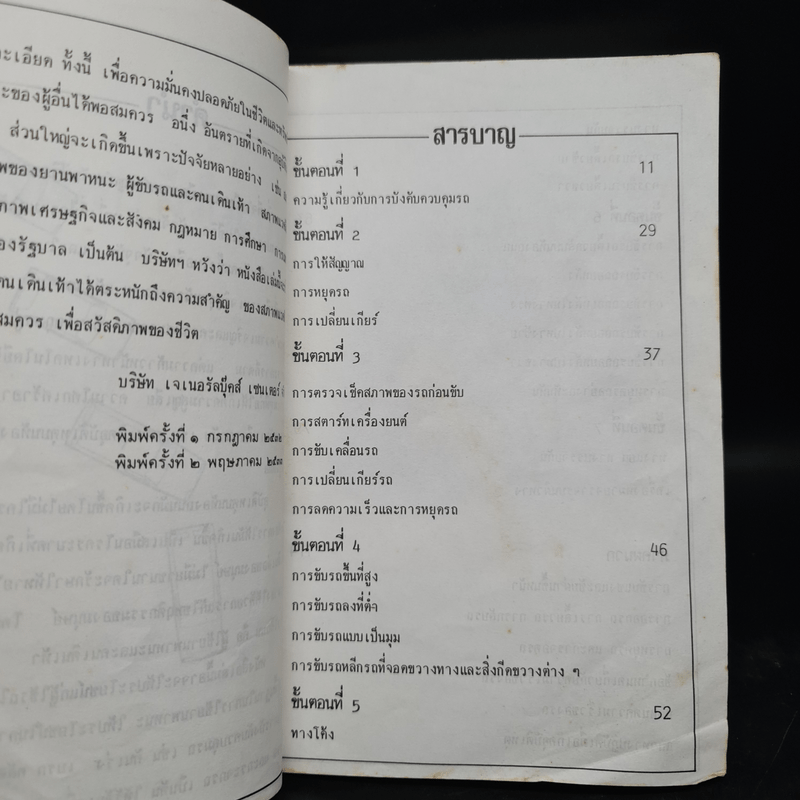 ะเอียด ทั้งนี้ เพื่อความมั่นคงปลอดภัยในชีวิตและ
ะของผู้อื่นได้พอสมควร อนึ่ง อันตรายที่เกิดจาก
ส่วนใหญ่จะเกิดขึ้นเพราะปัจจัยหลายอย่าง เช่น
พของยานพาหนะ ผู้ขับรถและคนเดินเท้า
ภาพเศรษฐกิจและสังคม กฎหมาย การศึกษา
องรัฐบาล เป็นต้น บริษัทฯ หวังว่า หนังสือเล่มนี้
คนเดินเท้าได้ตระหนักถึงความสำคัญ ของสภาพ
สมควร เพื่อสวัสดิภาพของชีวิต
บริษัท เจเนอรัลบุ๊คส์ เซนเตอร์
พิมพ์ครั้งที่ ๑ กรกฎาคม
พิมพ์ครั้งที่ ๒ พฤษภาคม
สารบาญ
ขั้นตอนที่ 1 11
ความรู้เกี่ยวกับการบังคับควบคุมรถ
ขั้นตอนที่ 2 29
การให้สัญญาณ
การหยุดรถ
การเปลี่ยนเกียร์
ขั้นตอนที่ 3 37
การตรวจเช็คสภาพของรถก่อนขับ
การสตาร์ทเครื่องยนต์
การขับเคลื่อนรถ
การเปลี่ยนเกียร์รถ
การลดความเร็วและการหยุดรถ
ขั้นตอนที่ 4 46
การขับรถขึ้นที่สูง
การขับรถลงที่ต่ำ
การขับรถแบบเป็นมุม
การขับรถหลีกรถที่จอดขวางทางและสิ่งกีดขวางต่าง ๆ
ขั้นตอนที่ 5 52
ทางโค้ง